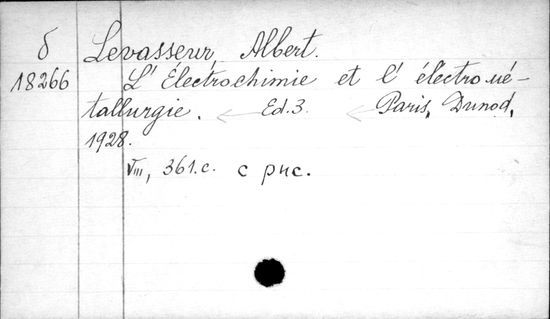 б Levasseur, Albert.
18266 L'Électrochimie et l'électromé-
tallurgie. Ed. 3. Paris, Dunod,
1928.
VIII, 361.c. с рис.